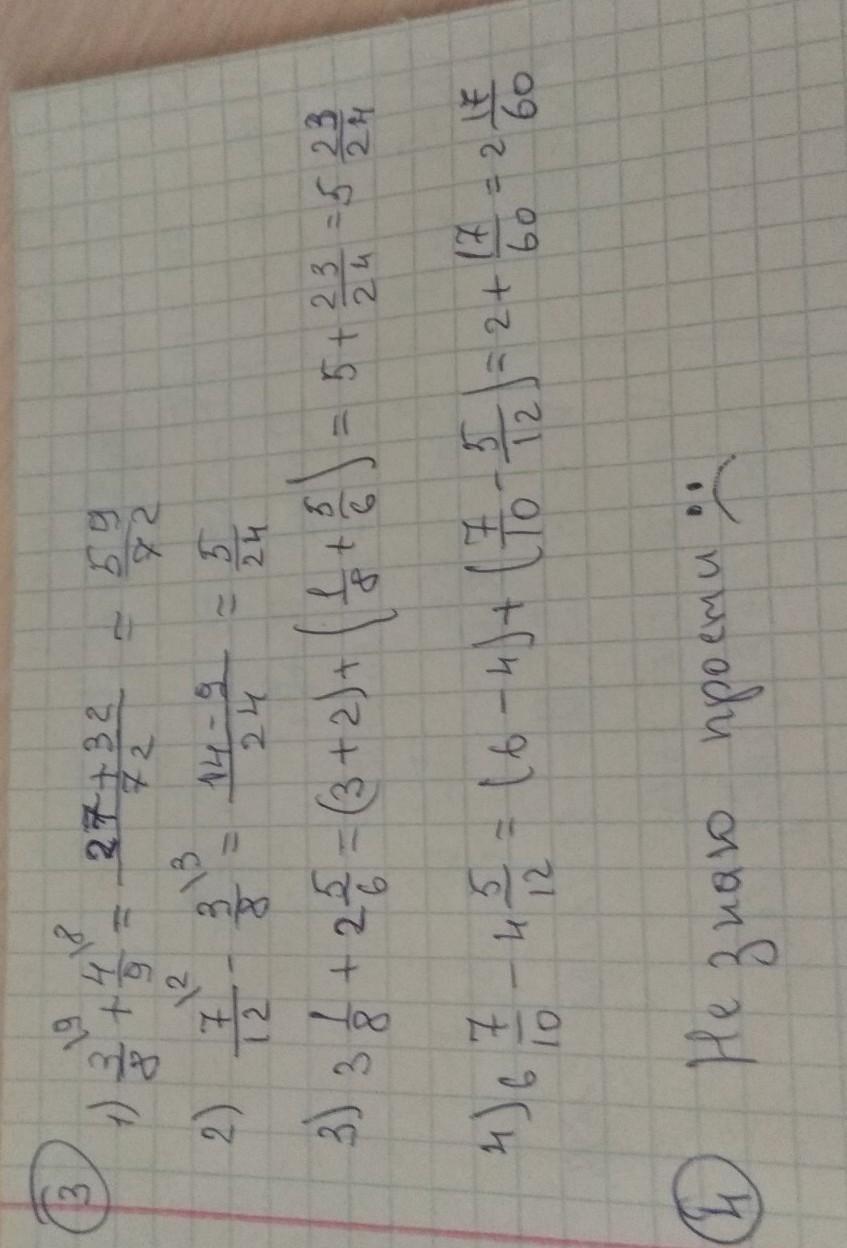 3
1) 3/8 \9 + 4/9 \8 = 27+32/72 = 59/72
2) 7/12 \2 - 3/8 \3 = 14-9/24 = 5/24
3) 3 1/8 + 2 5/6 = (3+2) + (1/8 + 5/6) = 5 + 23/24 = 5 23/24
4) 6 7/10 - 4 5/12 = (6-4) + (7/10 - 5/12) = 2 + 17/60 = 2 17/60
4 Не знаю прости :(